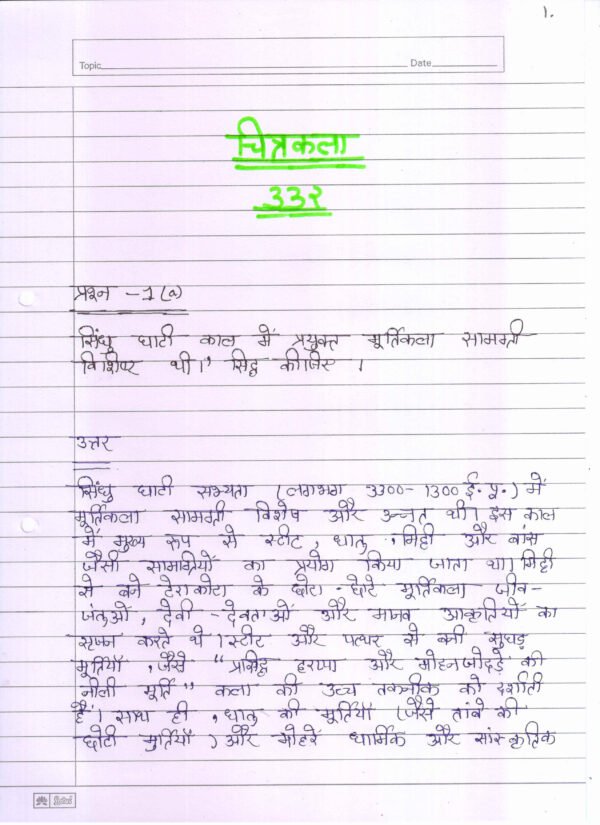 1.
Topic Date
चित्रकला
332
प्रश्न - 1 (a)
सिंधु घाटी काल में प्रयुक्त मूर्तिकला सामग्री
विशिष्ट थी।' सिद्ध कीजिए ।
उत्तर
सिंधु घाटी सभ्यता (लगभग 3300-1300 ई. पू.) में
मूर्तिकला सामग्री विशेष और उन्नत थी। इस काल
में मुख्य रूप से स्टीट, धातु, मिट्टी और बांस
जैसी सामग्रियों का प्रयोग किया जाता था। मिट्टी
से बने टेराकोटा के छोटे-छोटे मूर्तिकला जीव-
जंतुओं, देवी-देवताओं और मानव आकृतियों का
सृजन करते थे। स्टीट और पत्थर से बनी सुघड़
मूर्तियाँ, जैसे "प्रसिद्ध हरप्पा और मोहनजोदड़े की
नीली मूर्ति" कला की उच्च तकनीक को दर्शाती
हैं। साथ ही, धातु की मूर्तियाँ (जैसे तांबे की
छोटी मुर्तियाँ) और मोहरें धार्मिक और सांस्कृतिक